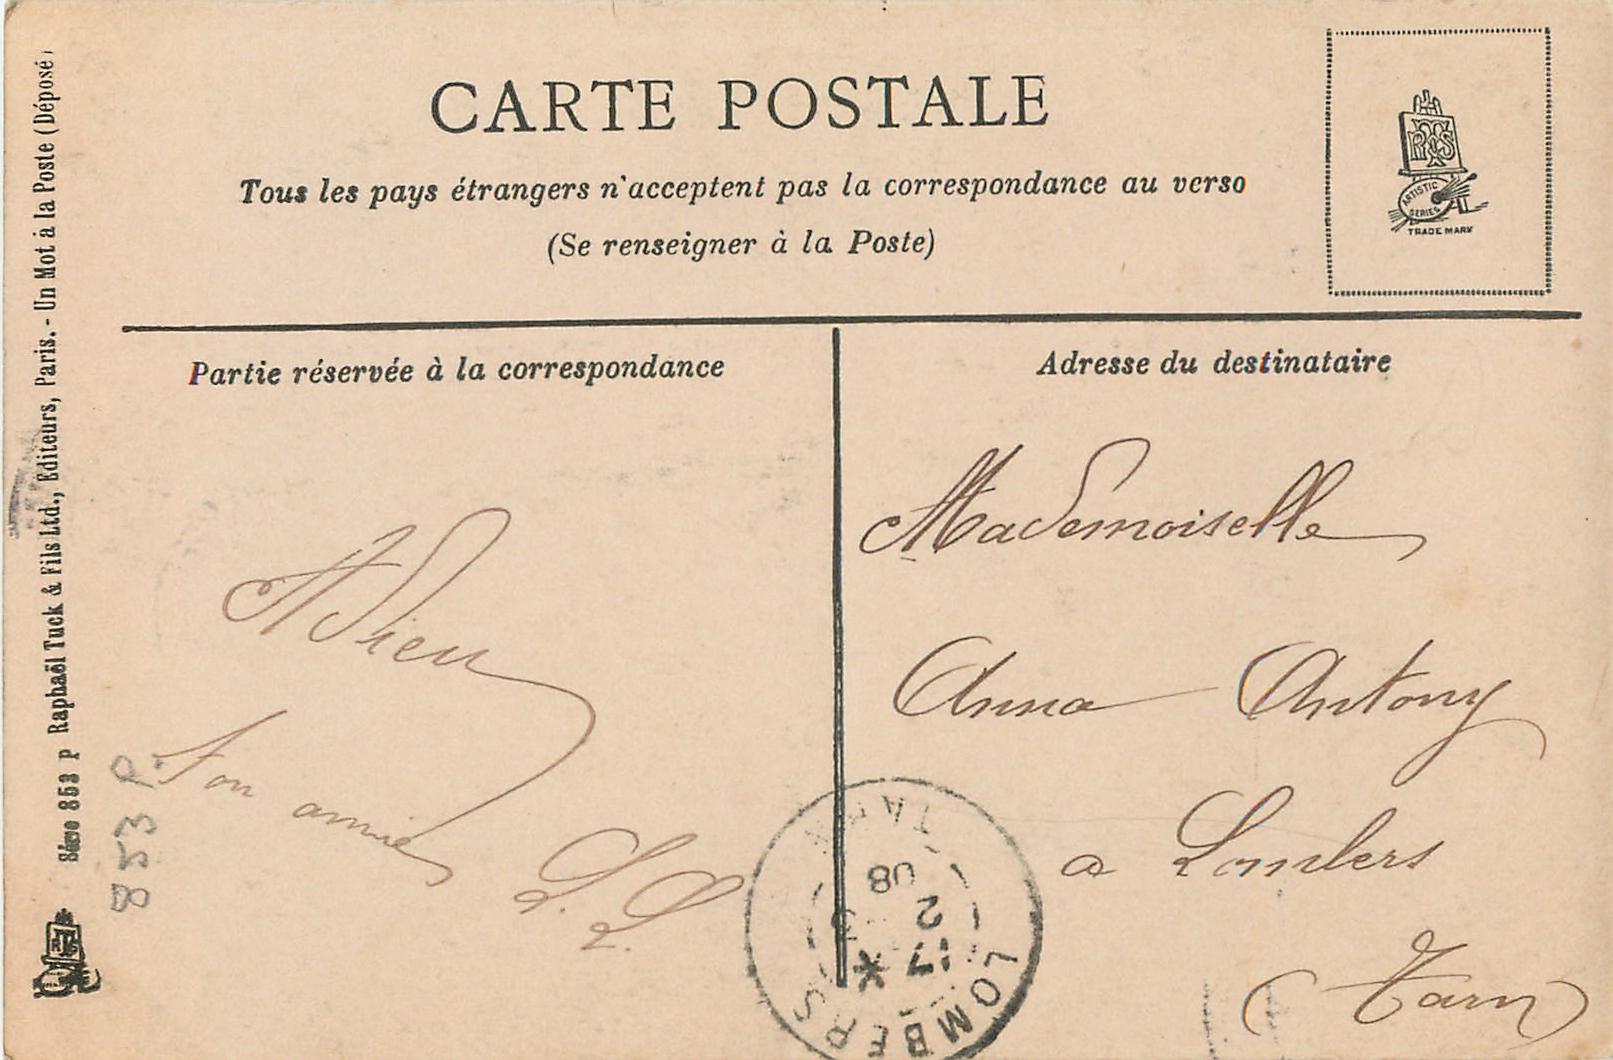 CARTE POSTALE
Tous les pays étrangers n'acceptent pas la correspondance au verso
(Se renseigner à la Poste)
RTS
ARTISTIC
SERIES
TRADE MARK
Série 853 P Raphaël Tuck & Fils Ltd., Editeurs, Paris. - Un Mot à la Poste (Déposé)
853 P.
Partie réservée à la correspondance
ADieu
Ton amie
L. L.
Adresse du destinataire
Mademoiselle
Anna Antony
a Lombers
(Tarn)
TARN
08
2
17 *
LOMBERS